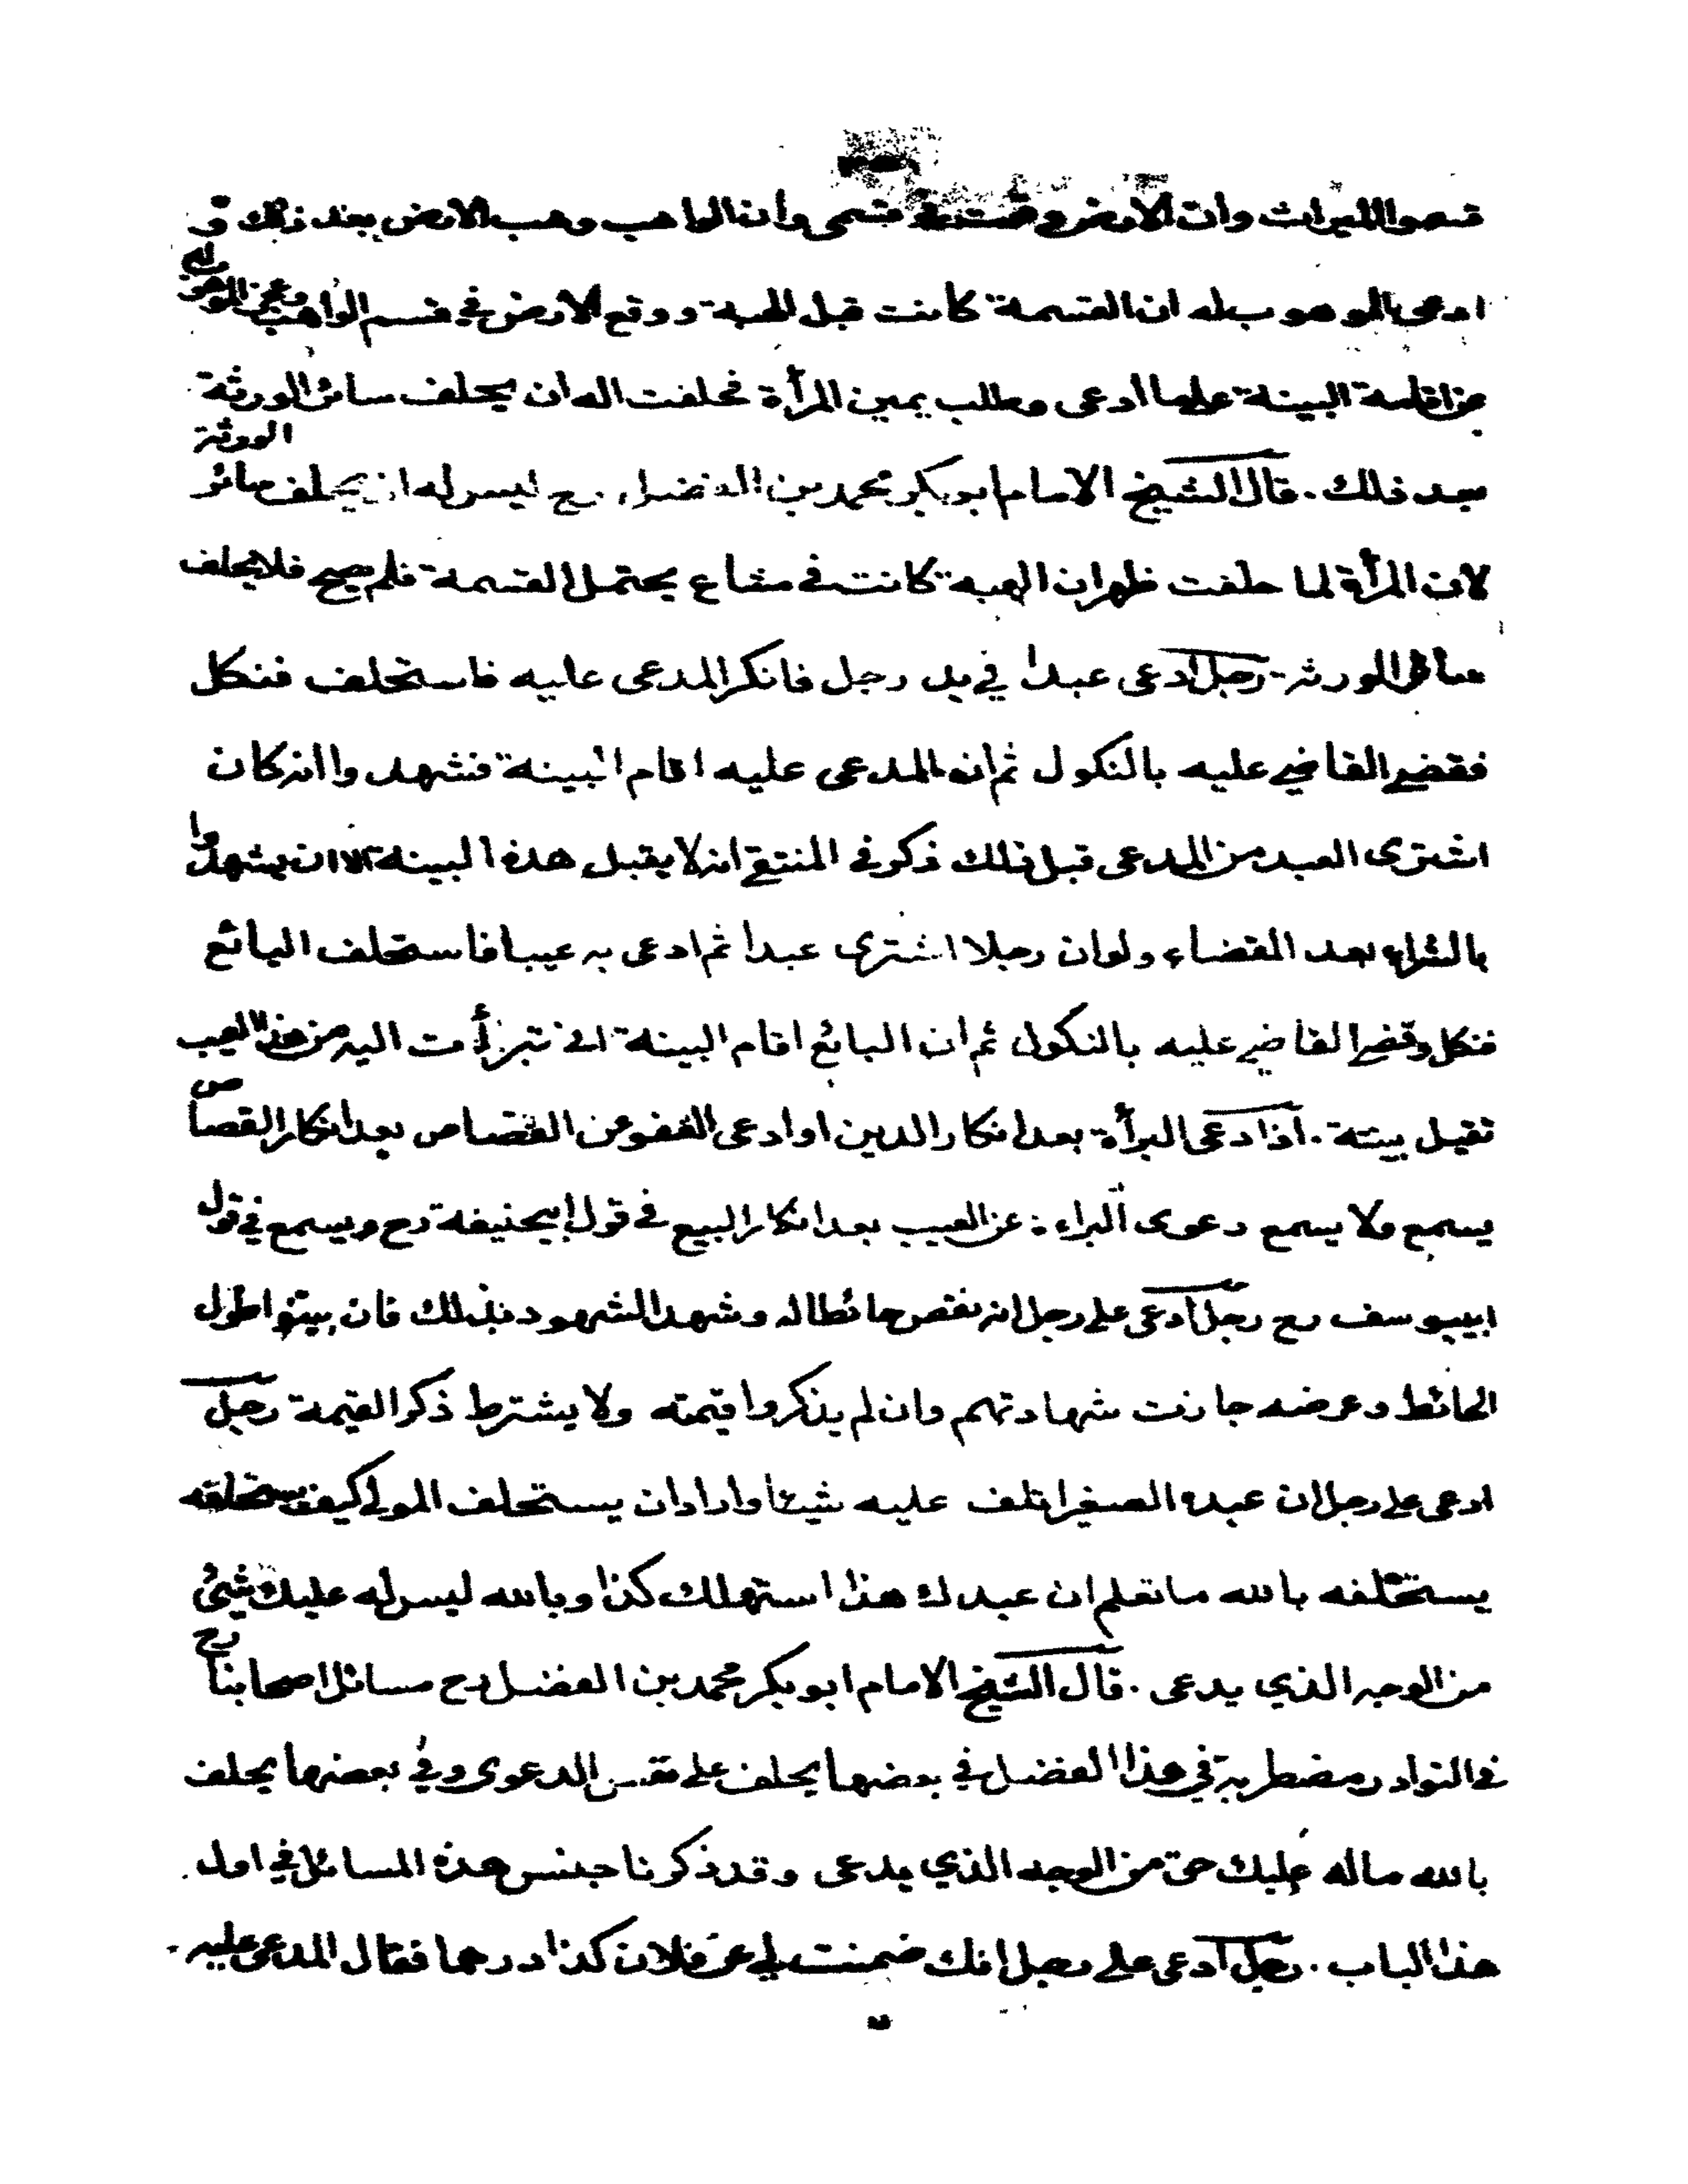 قسموا الميراث وان الارض وقعت في قسمى وان الواهب وهب الارض بعد ذلك و
ادعى الموهوب له ان القسمة كانت قبل الهبة ووقع الارض في قسم الواهب وعجز الموهوب له
عن اقامة البينة على ما ادعى وطلب يمين المرأة فحلفت اله ان يحلف سائر الورثة
بعد ذلك . قال الشيخ الامام ابو بكر محمد بن الفضل رح ليس له ان يحلف سائر الورثة
لان المرأة لما حلفت ظهر ان الهبة كانت في مشاع يحتمل القسمة فلم يصح فلا يحلف
سائر الورثة رجل ادعى عبدا في يد رجل فانكر المدعى عليه فاستحلف فنكل
فقضى القاضي عليه بالنكول ثم ان المدعى عليه اقام البينة فشهدوا انه كان
اشترى العبد من المدعى قبل ذلك ذكر في المنتقى انه لا يقبل هذه البينة الا ان يشهدوا
بالشراء بعد القضاء ولو ان رجلا اشترى عبدا ثم ادعى به عيبا فاستحلف البائع
فنكل وقضى القاضي عليه بالنكول ثم ان البائع اقام البينة اني تبرأت اليه من هذا العيب
تقبل بينته . اذا ادعى البرأة بعد انكار الدين او ادعى العفو عن القصاص بعد انكار القصاص
يسمع ولا يسمع دعوى البراءة عن العيب بعد انكار البيع في قول ابيحنيفة رح ويسمع في قول
ابييوسف رح رجل ادعى على رجل انه نقض حائطا له وشهد الشهود بذلك فان بينوا طول
الحائط وعرضه جازت شهادتهم وان لم يذكروا قيمته ولا يشترط ذكر القيمة رجل
ادعى على رجل ان عبده الصغير اتلف عليه شيئا واراد ان يستحلف المولى كيف يستحلفه
يستحلفه بالله ما تعلم ان عبدك هذا استهلك كذا وبالله ليس له عليك شيئ
من الوجه الذي يدعى . قال الشيخ الامام ابو بكر محمد بن الفضل رح مسائل اصحابنا رح
في النوادر مضطربة في هذا الفصل في بعضها يحلف على نفس الدعوى وفي بعضها يحلف
بالله ماله عليك حق من الوجه الذي يدعى وقد ذكرنا جنس هذه المسائل في اول
هذا الباب . رجل ادعى على رجل انك ضمنت لي عن فلان كذا درهما فقال المدعى عليه